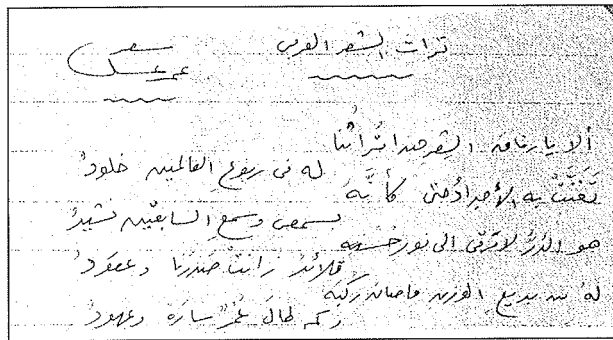 تراث الشعر العربي
شعر
عمر عسل
ألا يا رفاق الشعر هذا تُراثُنا
له في ربوع العالمين خلودُ
تَغَنَّتْ به الأجدادُ حتى كأنَّهُ
بسمعي وسمع السابقين نشيدُ
هو الدُّرُّ لا ترقى الى نور حسنه
قلائدُ زانت صدرنا وعقودُ
لهُ من بديع الوزن ما صان ركبَه
وكم طالَ عُمرٌ سارَهُ وعهودُ